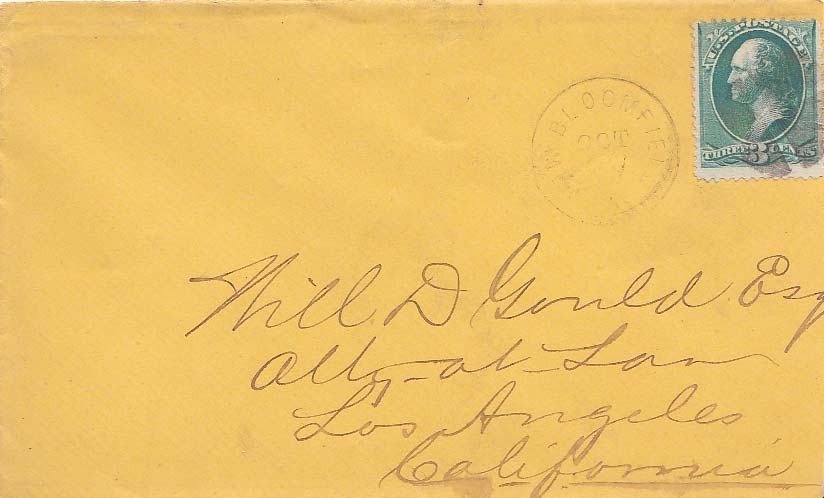 U.S. POSTAGE
THREE 3 CENTS
BLOOMFIEL
OCT
Will. D Gould. Esq
Atty-at-Law
Los Angeles
California